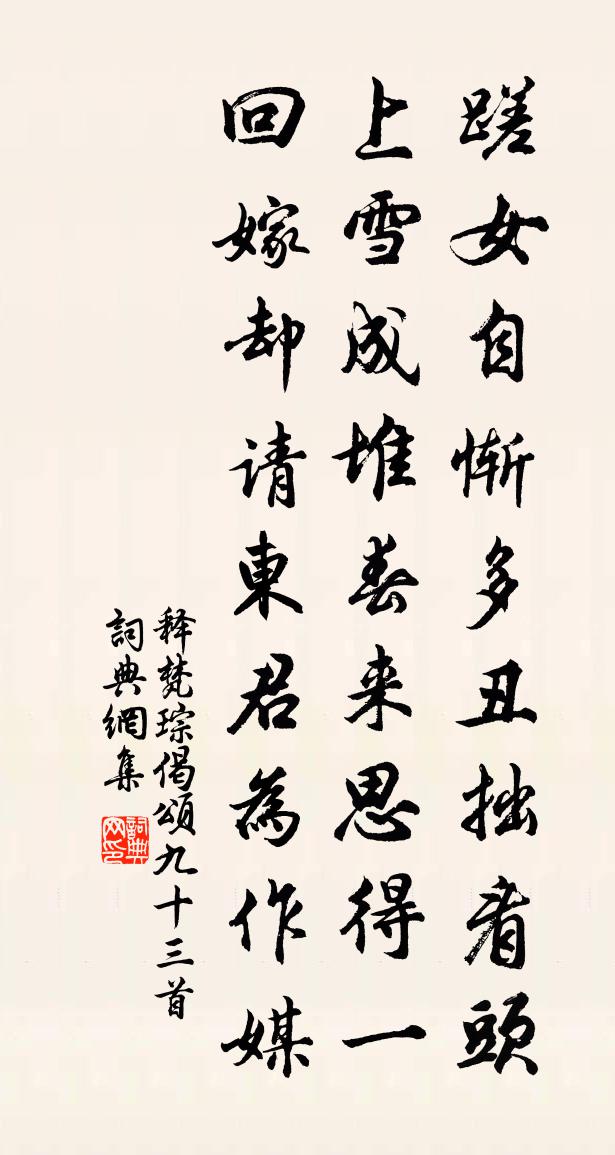 蹉女自惭多丑拙看頭
上雪成堆春来思得一
回嫁却请東君為作媒
释梵琮偈頌九十三首
詞典網集
詞典网印